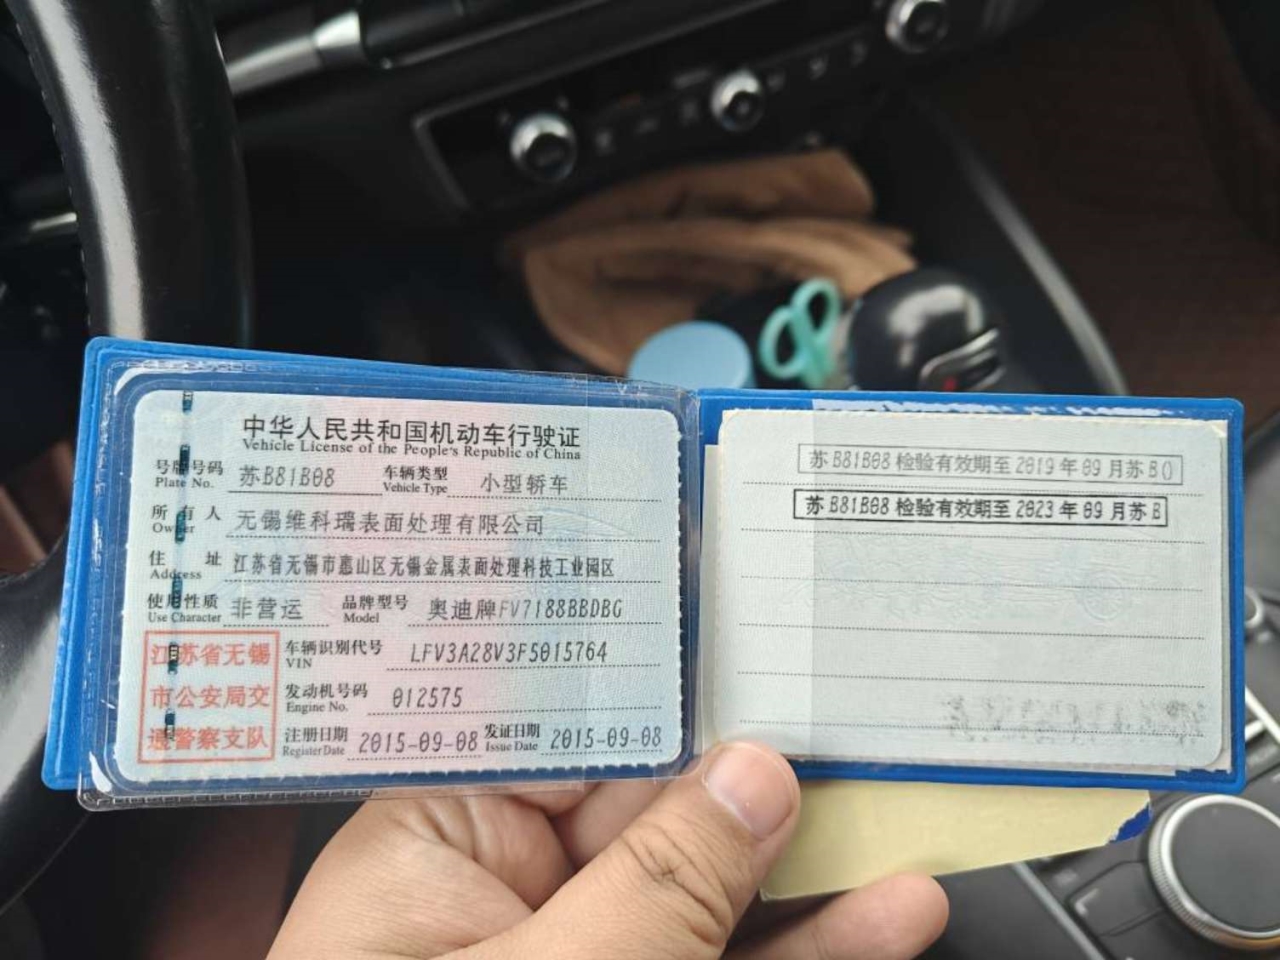 中华人民共和国机动车行驶证
Vehicle License of the People's Republic of China
号牌号码 苏B81B08 车辆类型 小型轿车
Plate No. Vehicle Type
所有人 无锡维科瑞表面处理有限公司
Owner
住址 江苏省无锡市惠山区无锡金属表面处理科技工业园区
Address
使用性质 非营运 品牌型号 奥迪牌FV7188BBDBG
Use Character Model
江苏省无锡
市公安局交
通警察支队
车辆识别代号 LFV3A28V3F5015764
VIN
发动机号码 012575
Engine No.
注册日期 2015-09-08 发证日期 2015-09-08
Register Date Issue Date
苏B81B08 检验有效期至2019年09月苏B()
苏B81B08 检验有效期至2023年09月苏B